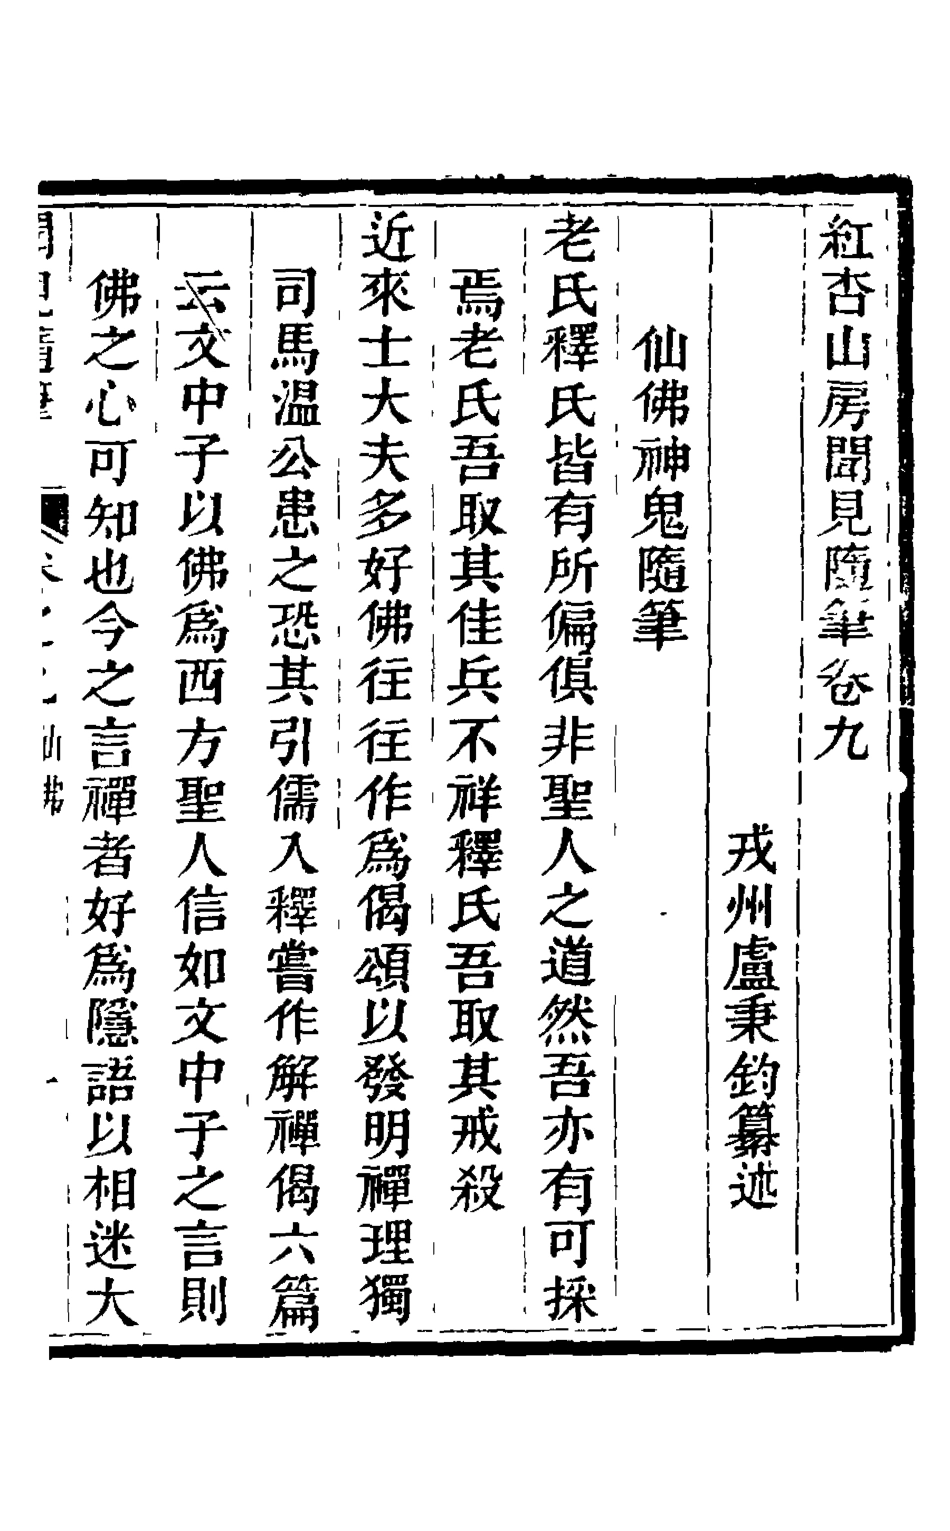 紅杏山房聞見隨筆卷九
戎州盧秉鈞纂述
仙佛神鬼隨筆
老氏釋氏皆有所偏傎非聖人之道然吾亦有可採
焉老氏吾取其佳兵不祥釋氏吾取其戒殺
近來士大夫多好佛往往作爲偈頌以發明禪理獨
司馬温公患之恐其引儒入釋嘗作解禪偈六篇
云文中子以佛爲西方聖人信如文中子之言則
佛之心可知也今之言禪者好爲隱語以相迷大
聞見隨筆
卷之九
仙佛
一